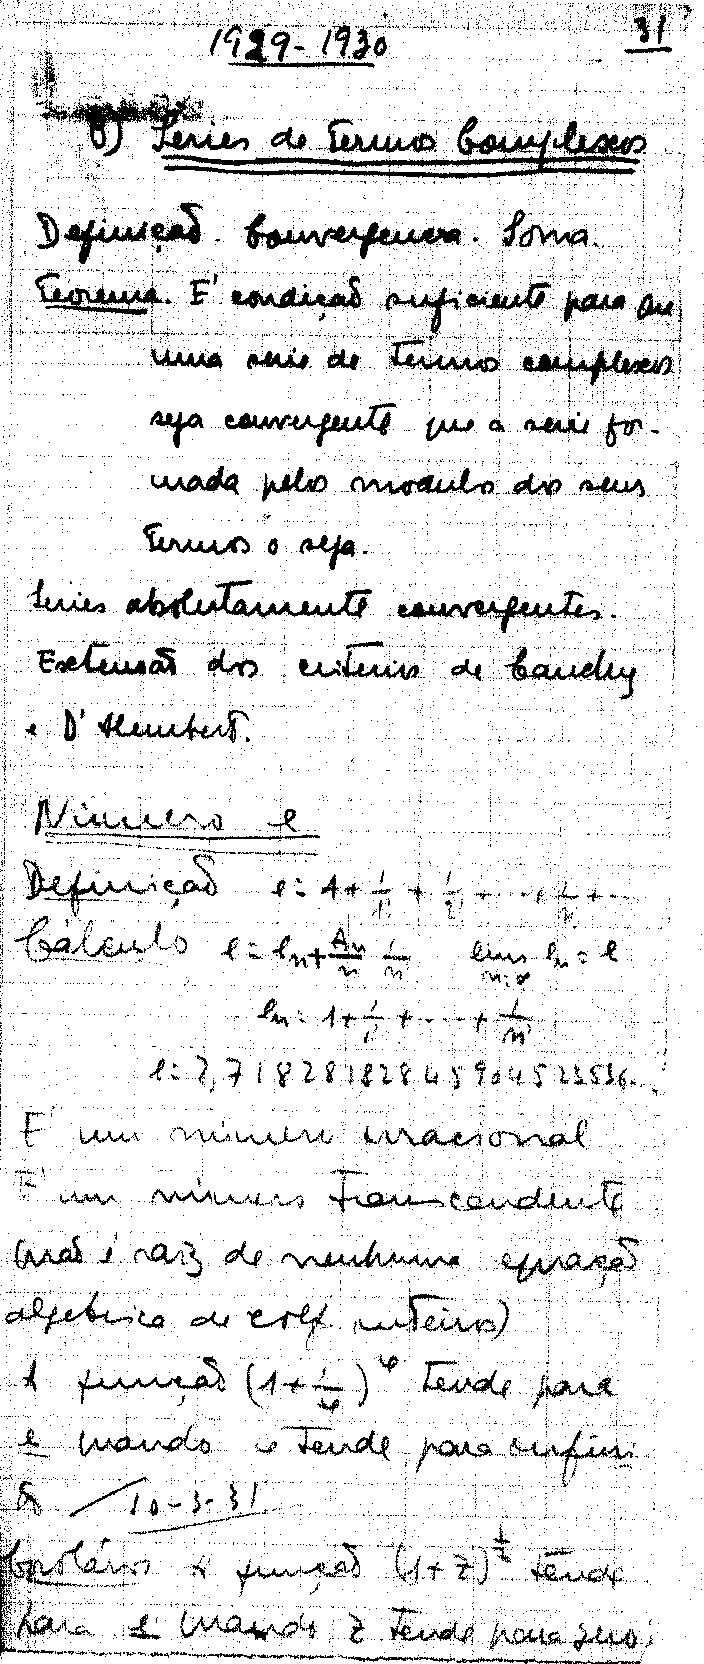 1929-1930
31
6) Series de Termos Complexos
Definição. Convergencia. Soma.
Teorema. E' condição suficiente para que
uma serie de termos complexos
seja convergente que a serie for-
mada pelos modulos dos seus
termos o seja.
Series absolutamente convergentes.
Extensão dos criterios de Cauchy
e D'Alembert.
Número e
Definição e = 1 + 1/1! + 1/2! + ... + 1/n! + ...
Cálculo e = en + An/n 1/n! lim n=∞ en = e
en = 1 + 1/1! + ... + 1/n!
e = 2,71828182845904523536...
E' um número irracional
E' um número transcendente
(não é raiz de nenhuma equação
algebrica de coef. inteiros)
A função (1 + 1/φ)^φ tende para
e quando φ tende para infini
to 10-3-31
Corolário A função (1+z)^1/z tende
para e quando z tende para zero.